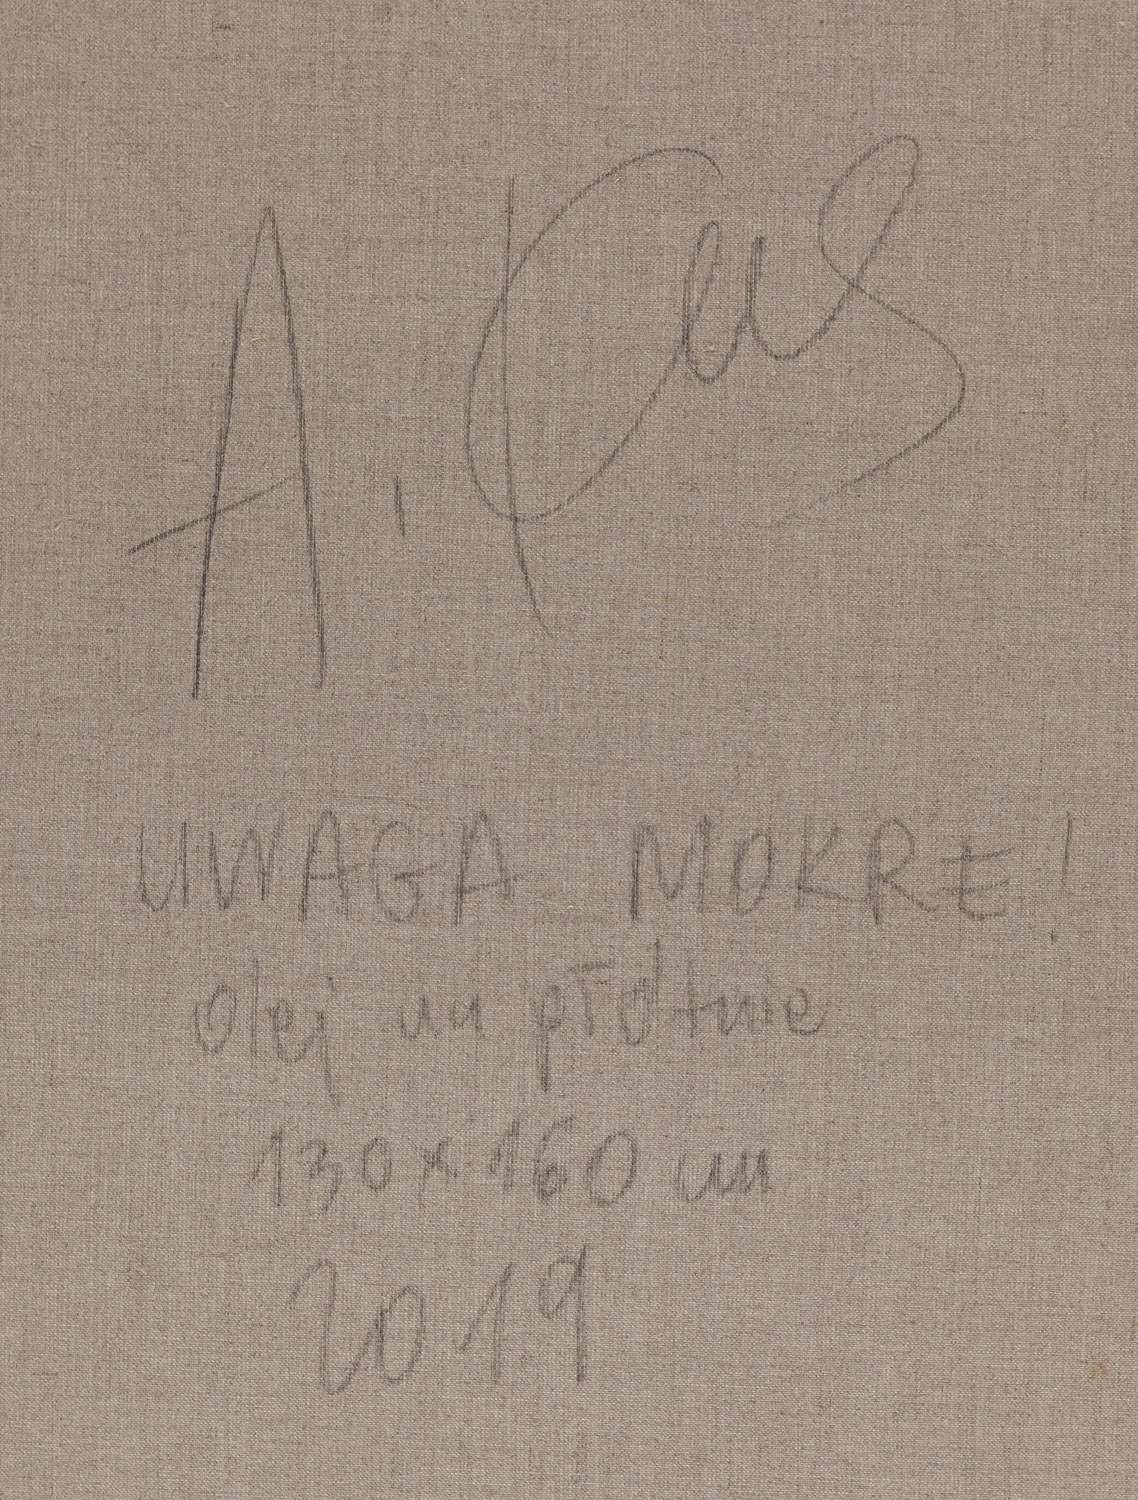 A. Kas
UWAGA MOKRE!
olej na płótnie
130x160 cm
2019